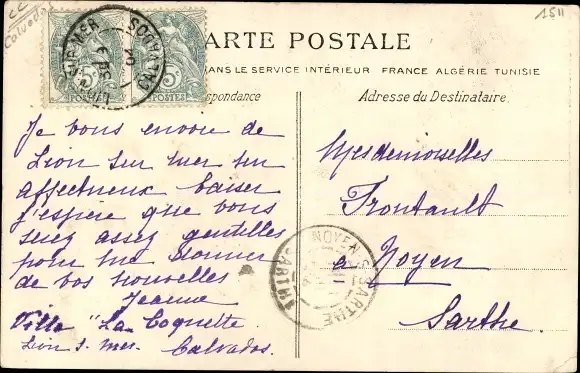 CC
Calvados
1511
CARTE POSTALE
DANS LE SERVICE INTÉRIEUR FRANCE ALGÉRIE TUNISIE
Correspondance
Adresse du Destinataire.
5c 5c
POSTES POSTES
Je vous envoie de
Lion sur mer un
affectueux baiser
j'espère que vous
serez assez gentilles
pour me donner
de vos nouvelles
Jeanne
Villa "La Coquette
Lion s. mer. Calvados.
Mesdemoiselles
Frontault
à Noyen
Sarthe.
NOYEN-S-SARTHE
SARTHE